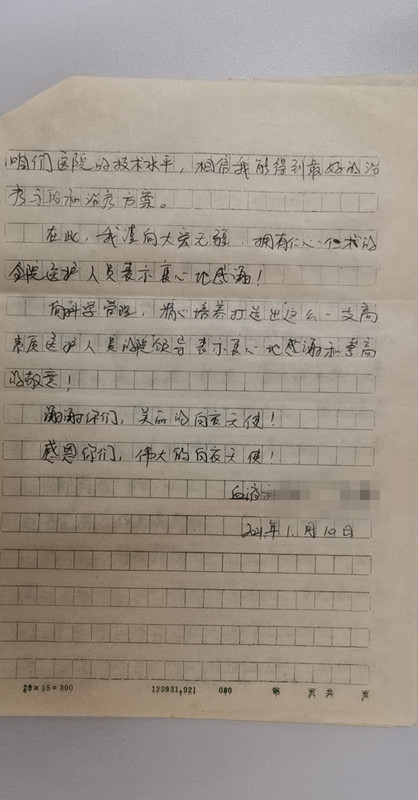 咱们医院的技术水平，相信我能得到最好的治
疗手段和治疗方案。
在此，我谨向大爱无疆，拥有仁心仁术的
全院医护人员表示衷心地感谢！
向科学管理，精心培养打造出这么一支高
素质医护人员的院领导表示衷心地感谢和崇高
的敬意！
谢谢你们，美丽的白衣天使！
感恩你们，伟大的白衣天使！
血液
2021年1月10日
20×15=300 120931,921 080 第 页共 页